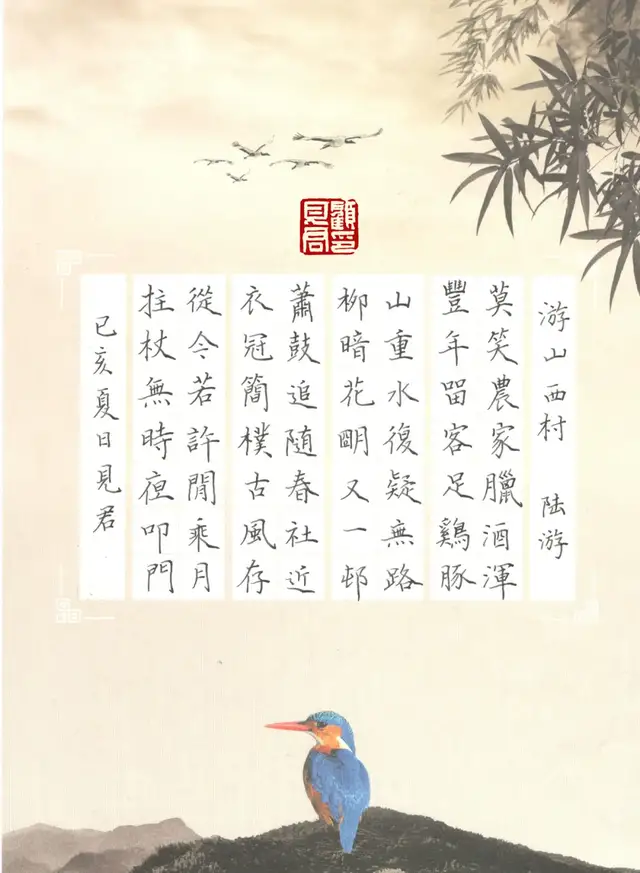 顧印見君
游山西村 陆游
莫笑農家臘酒渾
豐年留客足鷄豚
山重水復疑無路
柳暗花眀又一邨
蕭鼓追随春社近
衣冠簡樸古風存
從今若許閒乘月
拄杖無時夜叩門
己亥夏日見君